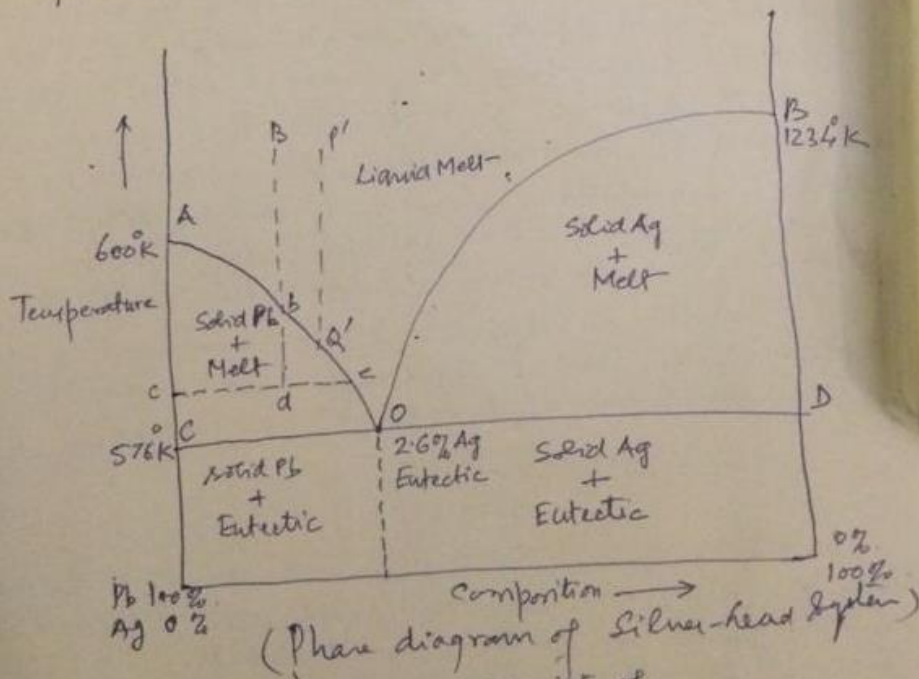 B P'
Liquid Melt
B
1234°K
A
600°K
Solid Ag
+
Melt
Temperature
Solid Pb
+
Melt
b
Q'
c
d
e
O
D
C
576°K
2.6% Ag
Eutectic
Solid Pb
+
Eutectic
Solid Ag
+
Eutectic
0%
100%
Pb 100%
Ag 0%
Composition
(Phase diagram of Silver-lead System)